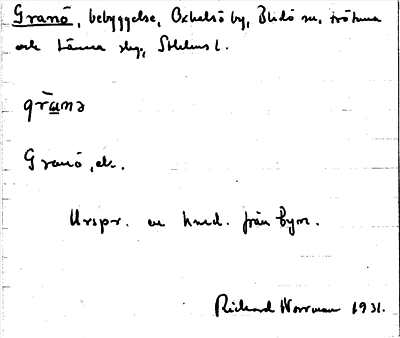 Granö, bebyggelse, Oxhalsö by, Blidö sn, Frötuna
och Länna skg, Sthlms l.
grànə
Granö, ek.
Urspr. en hmd. från byn.
Richard Norrman 1931.